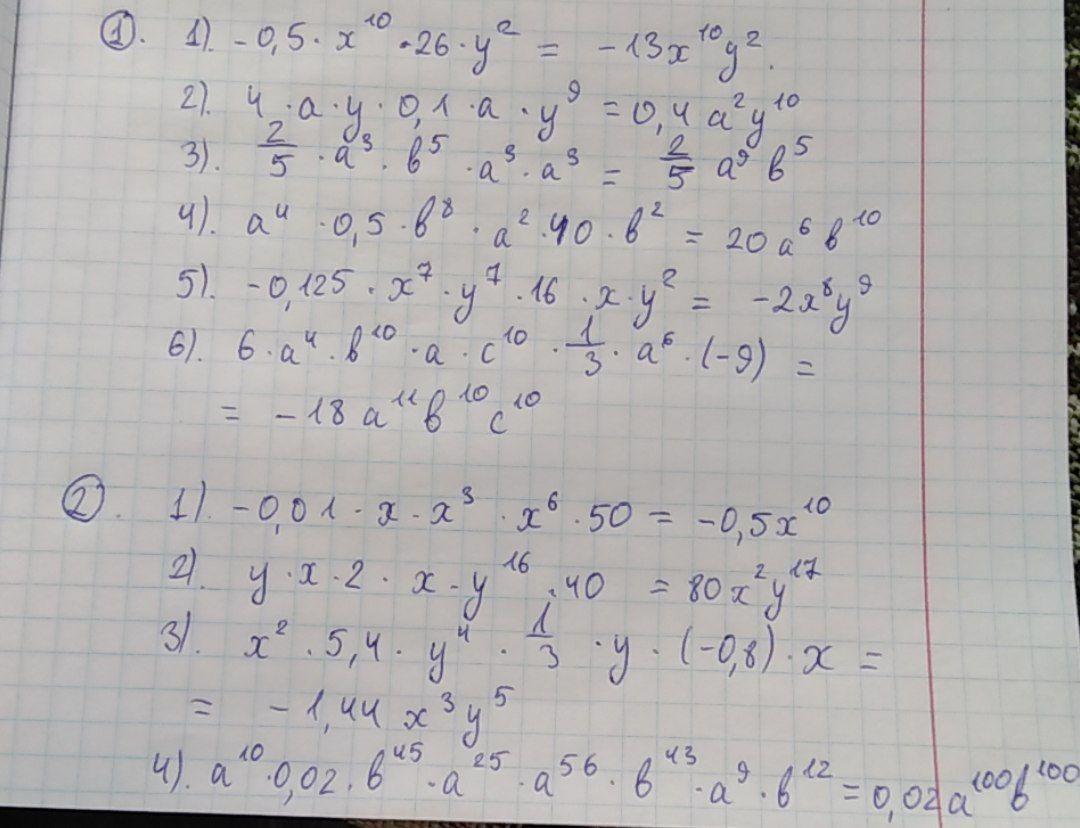 ①. 1). -0,5 · x¹⁰ · 26 · y² = -13x¹⁰y².
2). 4 · a · y · 0,1 · a · y⁹ = 0,4 a²y¹⁰
3). 2/5 · a³ · b⁵ · a³ · a³ = 2/5 a⁹ b⁵
4). a⁴ · 0,5 · b⁸ · a² · 40 · b² = 20a⁶b¹⁰
5). -0,125 · x⁷ · y⁷ · 16 · x · y² = -2x⁸y⁹
6). 6 · a⁴ · b¹⁰ · a · c¹⁰ · 1/3 · a⁶ · (-9) =
= -18a¹¹b¹⁰c¹⁰
②. 1). -0,01 · x · x³ · x⁶ · 50 = -0,5x¹⁰
2). y · x · 2 · x · y¹⁶ · 40 = 80x²y¹⁷
3). x² · 5,4 · y⁴ · 1/3 · y · (-0,8) · x =
= -1,44x³y⁵
4). a¹⁰ · 0,02 · b⁴⁵ · a²⁵ · a⁵⁶ · b⁴³ · a⁹ · b¹² = 0,02a¹⁰⁰b¹⁰⁰